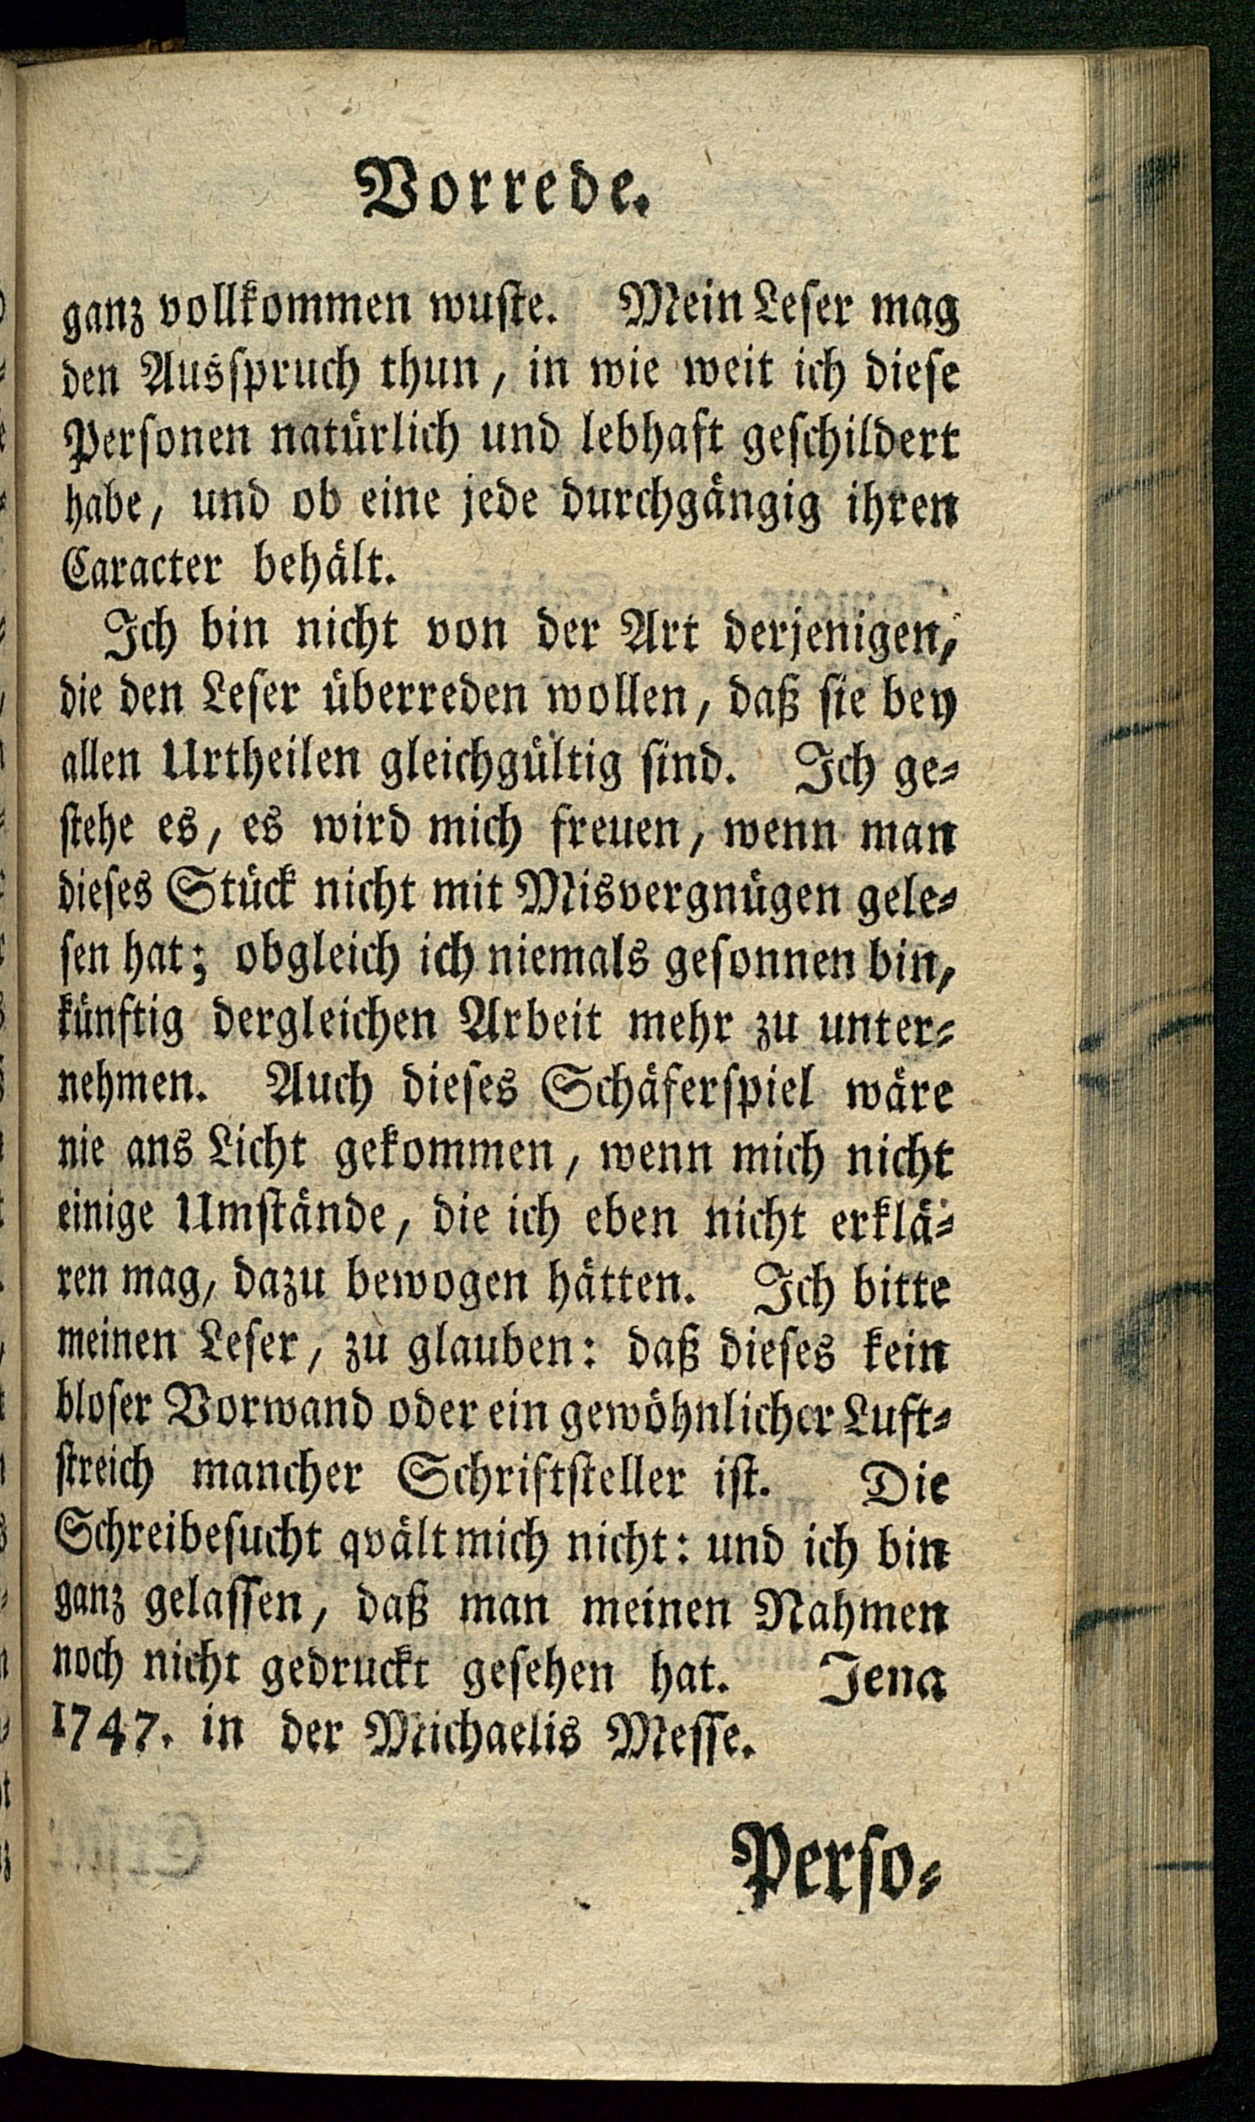 Vorrede.
ganz vollkommen wuste. Mein Leser mag
den Ausspruch thun, in wie weit ich diese
Personen natürlich und lebhaft geschildert
habe, und ob eine jede durchgängig ihren
Caracter behält.
Ich bin nicht von der Art derjenigen,
die den Leser überreden wollen, daß sie bey
allen Urtheilen gleichgültig sind. Ich ge-
stehe es, es wird mich freuen, wenn man
dieses Stück nicht mit Misvergnügen gele-
sen hat; obgleich ich niemals gesonnen bin,
künftig dergleichen Arbeit mehr zu unter-
nehmen. Auch dieses Schäferspiel wäre
nie ans Licht gekommen, wenn mich nicht
einige Umstände, die ich eben nicht erklä-
ren mag, dazu bewogen hätten. Ich bitte
meinen Leser, zu glauben: daß dieses kein
bloser Vorwand oder ein gewöhnlicher Luft-
streich mancher Schriftsteller ist. Die
Schreibesucht qvält mich nicht: und ich bin
ganz gelassen, daß man meinen Nahmen
noch nicht gedruckt gesehen hat. Jena
1747. in der Michaelis Messe.
Perso-